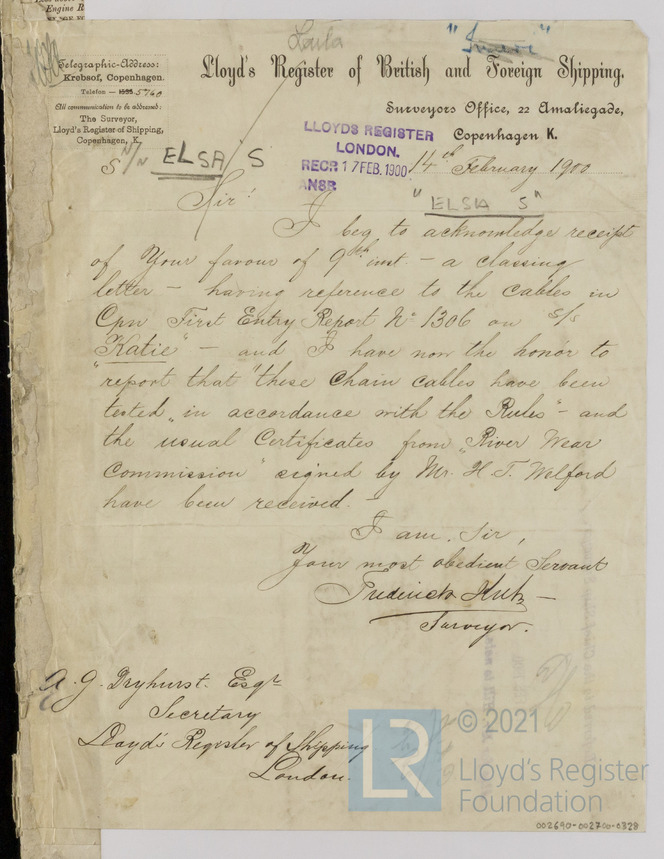 Engine R
Laila
Telegraphic-Address:
Krebsof, Copenhagen.
Telefon — 1335 5760
All communication to be addressed:
The Surveyor,
Lloyd's Register of Shipping,
Copenhagen, K.
Lloyd's Register of British and Foreign Shipping.
Surveyors Office, 22 Amaliegade,
Copenhagen K.
LLOYDS REGISTER
LONDON.
RECR 17 FEB. 1900
ANSR
14th February 1900
S/N ELSA S
"ELSA S"
Sir!
I beg to acknowledge receipt
of Your favour of 9th inst. - a classing
letter - having reference to the cables in
Cpn First Entry Report No 1306 on s/s
"Katie" - and I have now the honor to
report that these Chain cables have been
tested „in accordance with the Rules" - and
the usual Certificates from „River Wear
Commission" signed by Mr. H. T. Welford
have been received. -
I am, Sir,
Your most obedient Servant
Frederick
Surveyor.
A. G. Dryhurst. Esqre
Secretary
Lloyd's Register of Shipping
London.
LR
© 2021
Lloyd's Register
Foundation
002690-002700-0328